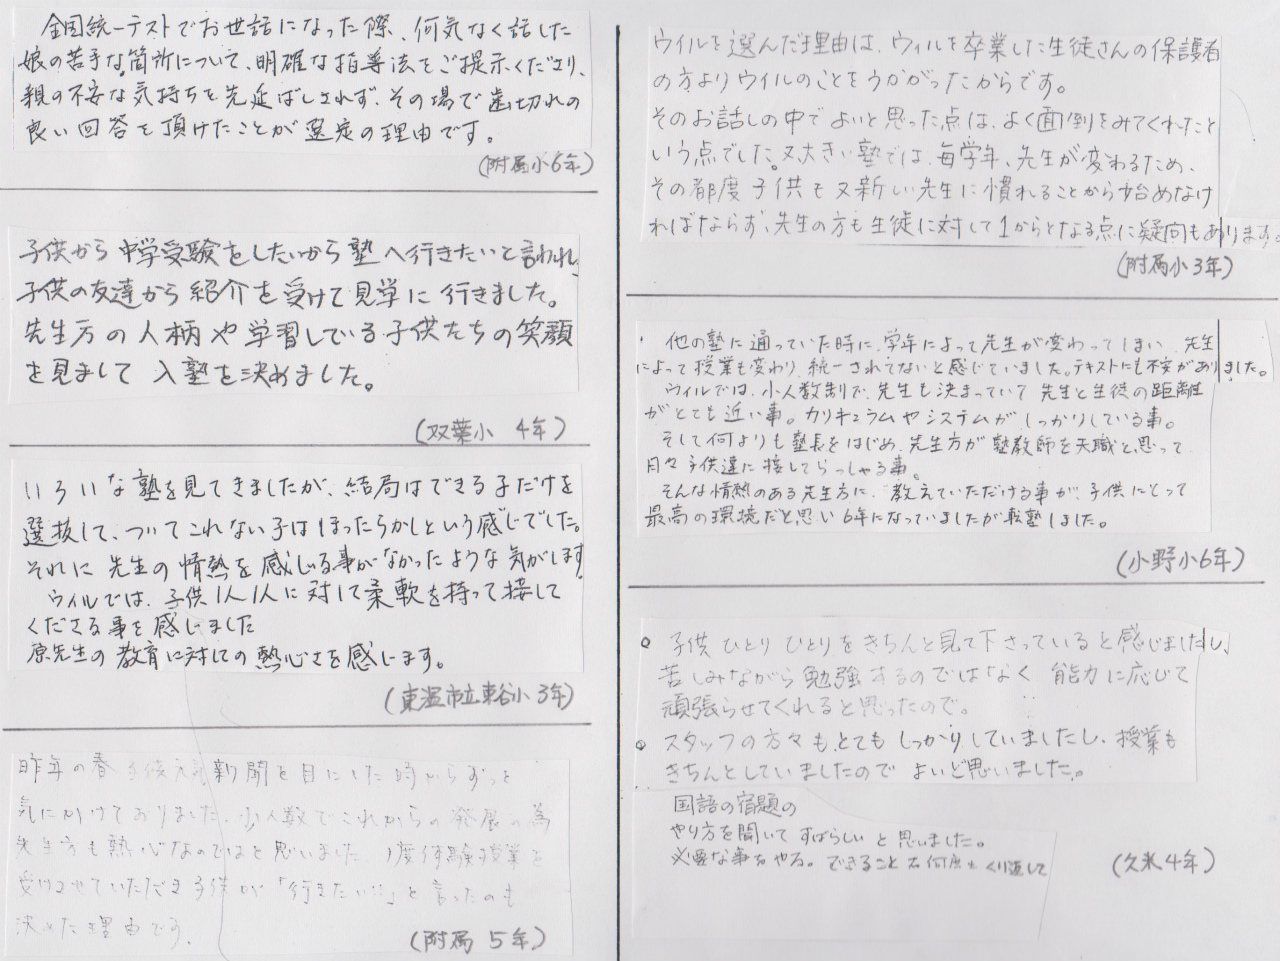 全国統一テストでお世話になった際、何気なく話した
娘の苦手な箇所について、明確な指導法をご提示くださり、
親の不安な気持ちを先延ばしされず、その場で歯切れの
良い回答を頂けたことが選定の理由です。
(附属小6年)
子供から中学受験をしたいから塾へ行きたいと言われ、
子供の友達から紹介を受けて見学に行きました。
先生方の人柄や学習している子供たちの笑顔
を見まして入塾を決めました。
(双葉小 4年)
いろいな塾を見てきましたが、結局はできる子だけを
選抜して、ついてこれない子はほったらかしという感じでした。
それに先生の情熱を感じる事がなかったような気がします
ウィルでは、子供1人1人に対して柔軟を持って接して
くださる事を感じました
原先生の教育に対しての熱心さを感じます。
(東温市立東谷小3年)
昨年の春 子供元気新聞を目にした時からずっと
気にかけておりました。少人数でこれからの発展の為
先生方も熱心なのではと思いました。1度体験授業を
受けさせていただき子供が「行きたい!!」と言ったのも
決めた理由です。
(附属 5年)
ウイルを選んだ理由は、ウィルを卒業した生徒さんの保護者
の方よりウイルのことをうかがったからです。
そのお話しの中でよいと思った点は、よく面倒をみてくれたと
いう点でした。又大きい塾では、毎学年、先生が変わるため、
その都度子供も又新しい先生に慣れることから始めなけ
ればならず、先生の方も生徒に対して1からとなる点に疑問もあります。
(附属小3年)
・他の塾に通っていた時に、学年によって先生が変わってしまい 先生
によって授業も変わり、統一されてないと感じていました。テキストにも不安がありました。
ウィルでは、小人数制で、先生も決まっていて 先生と生徒の距離
がとても近い事。カリキュラムやシステムが しっかりしている事。
そして何よりも塾長をはじめ、先生方が 塾教師を天職と思って
日々子供達に接してらっしゃる事。
そんな情熱のある先生方に、教えていただける事が、子供にとって
最高の環境だと思い6年になっていましたが転塾しました。
(小野小6年)
○ 子供ひとりひとりをきちんと見て下さっていると感じましたし、
苦しみながら勉強するのではなく 能力に応じて
頑張らせてくれると思ったので。
○ スタッフの方々も、とてもしっかりしていましたし、授業も
きちんとしていましたので よいと思いました。
国語の宿題の
やり方を聞いて すばらしい と思いました。
必要な事をやる。できることを何度もくり返して
(久米4年)